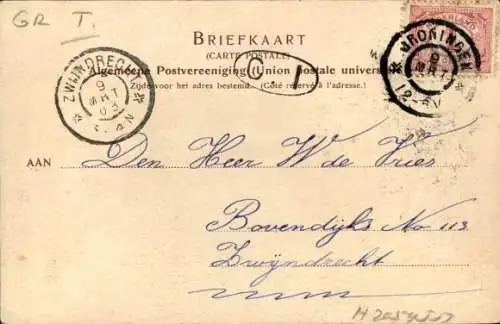 GR T.
BRIEFKAART
(CARTE POSTALE)
Algemeene Postvereeniging (Union postale univers
Zijde voor het adres bestemd. (Côté réservé à l'adresse.)
ZWIJNDRECHT
9
MRT
03
GRONINGEN
9
MRT
12-
1
AAN Den Heer W de Vries
Bovendijks No 113
Zwijndrecht